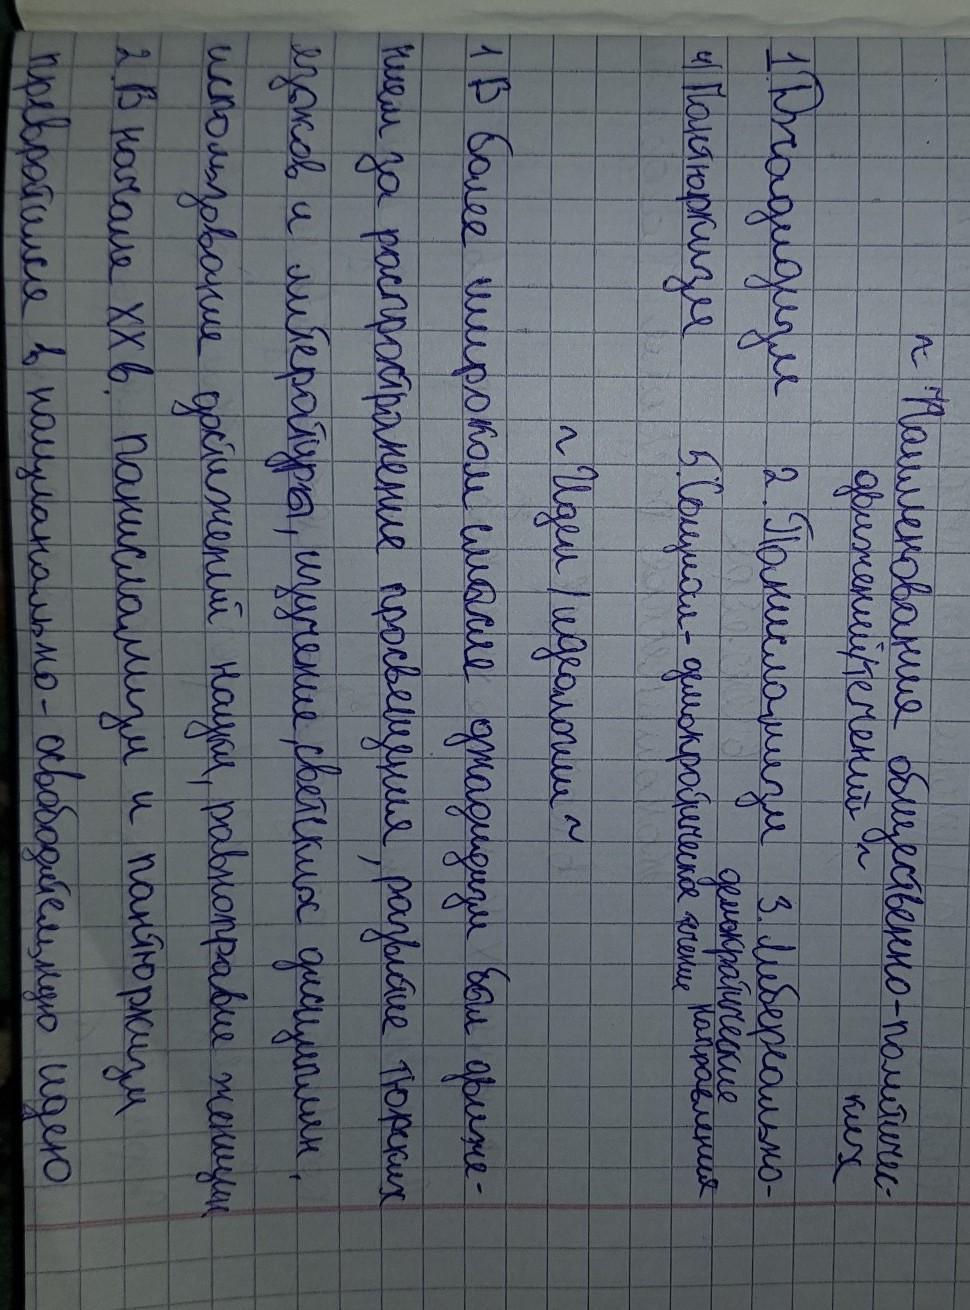 ~ Наименование общественно-политичес-
ких
движений/течений ~
1. Джадидизм 2. Панисламизм 3. Либерально-
демократические
4) Пантюркизм 5. Социал-демократическое течение направления
~ Идеи/идеологии ~
1 В более широком смысле джадидизм был движе-
нием за распространение просвещения, развитие тюрских
языков и литературы, изучение светских дисциплин,
использование достижений науки, равноправие женщин
2. В начале XX в. панисламизм и пантюркизм
превратился в национально-освободительную идею